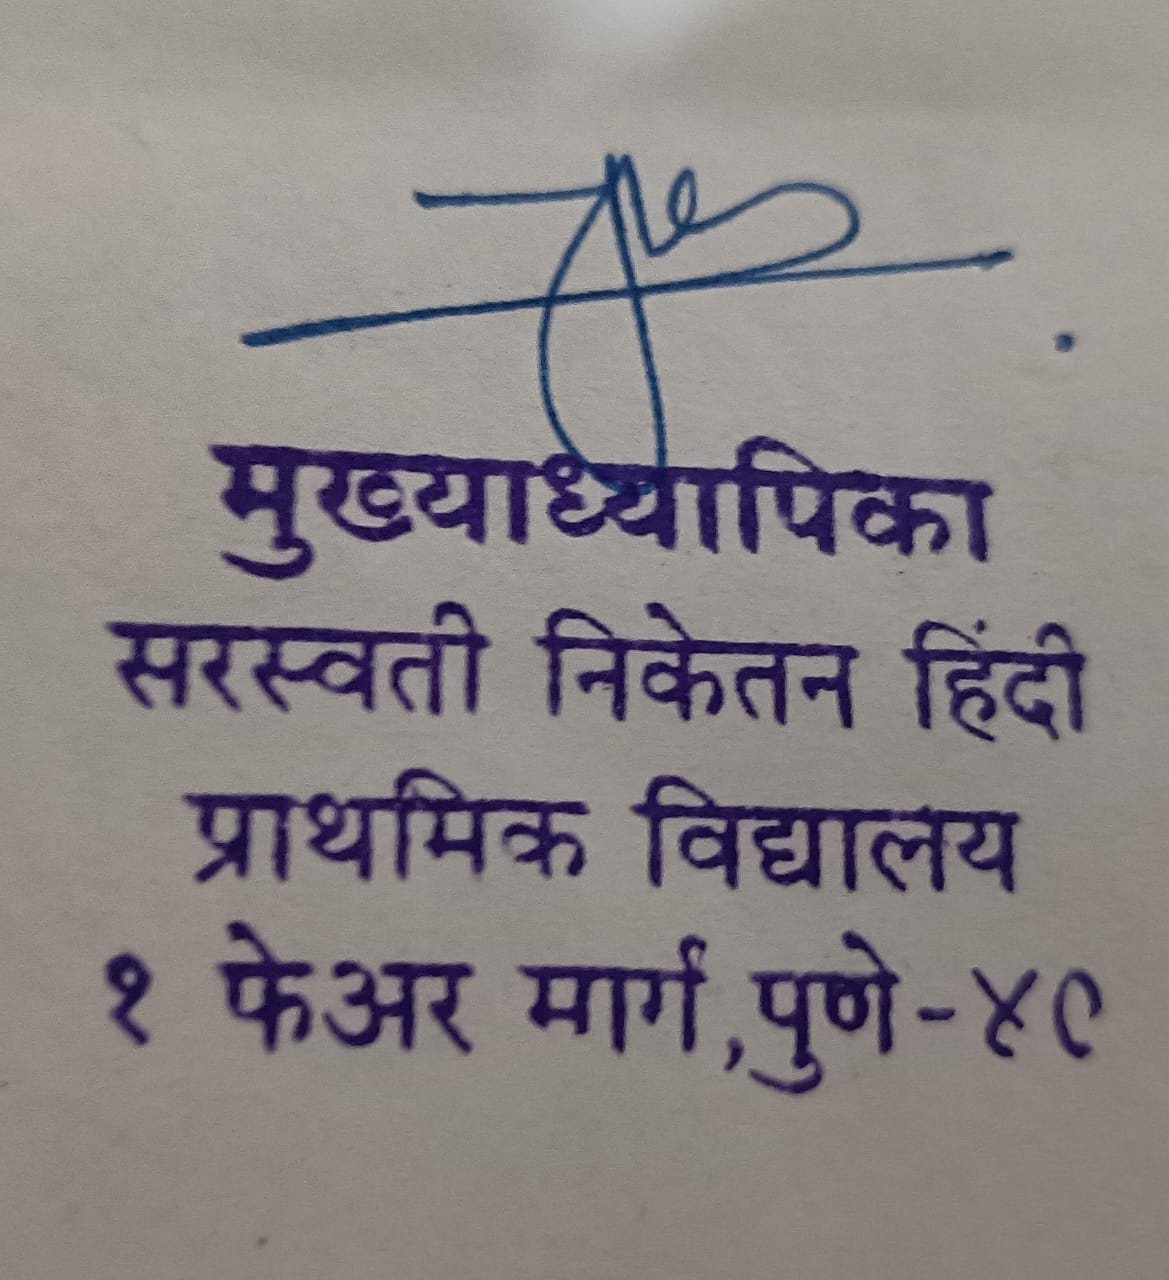 मुख्याध्यापिका
सरस्वती निकेतन हिंदी
प्राथमिक विद्यालय
१ फेअर मार्ग, पुणे-४९